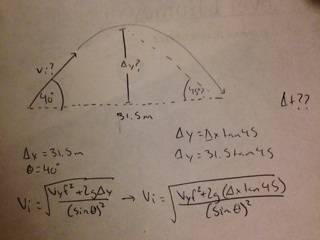 Vi?
40°
Δy?
45°?
31.5m
Δ+??
Δx = 31.5m
θ = 40°
Δy = Δx tan 45
Δy = 31.5 tan 45
Vi = √(Vyf² + 2gΔy / (sinθ)²) → Vi = √(Vyf² + 2g(Δx tan 45) / (sinθ)²)